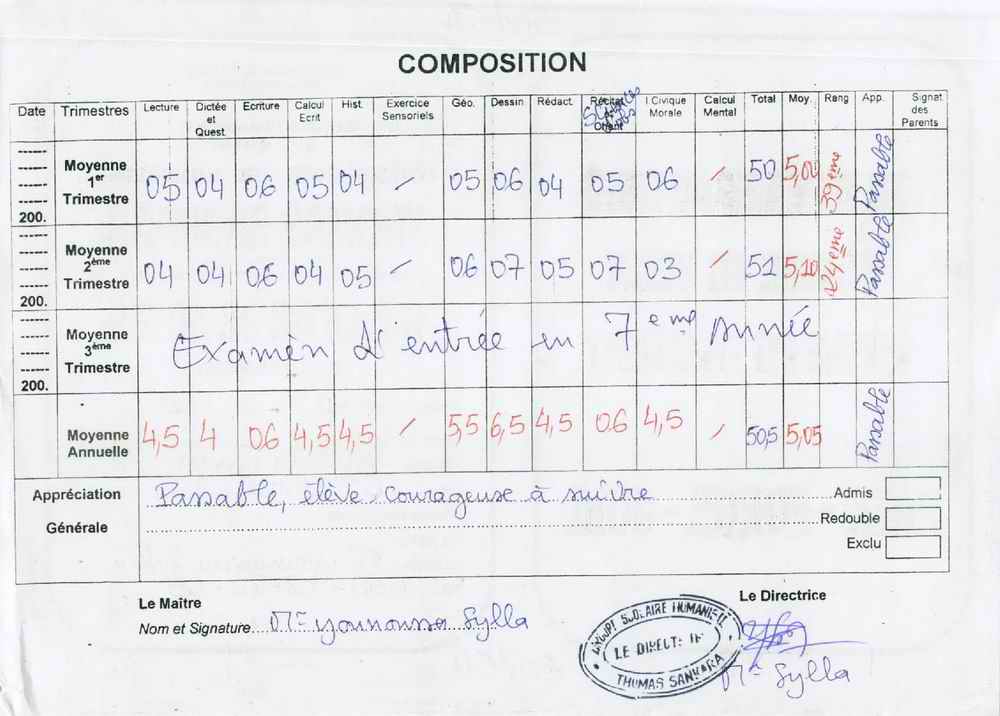 COMPOSITION
Date Trimestres Lecture Dictée et Quest. Ecriture Calcul Ecrit Hist. Exercice Sensoriels Géo. Dessin Rédact. I.Civique Morale Calcul Mental Total Moy. Rang App. Signat des Parents
Moyenne 1er Trimestre 05 04 06 05 04 / 05 06 04 05 06 / 50 5,00 39ème Passable
200.
Moyenne 2ème Trimestre 04 04 06 04 05 / 06 07 05 07 03 / 51 5,10 24ème Passable
200.
Moyenne 3ème Trimestre Examen d'entrée en 7eme Année
200.
Moyenne Annuelle 4,5 4 06 4,5 4,5 / 5,5 6,5 4,5 06 4,5 / 50,5 5,05 Passable
Appréciation Générale Passable, élève courageuse à suivre
Admis
Redouble
Exclu
Le Maître
Nom et Signature Mr Younoussa Sylla
Le Directrice
GROUPE SCOLAIRE
LE DIRECTEUR
THOMAS SANKARA
Mr Sylla